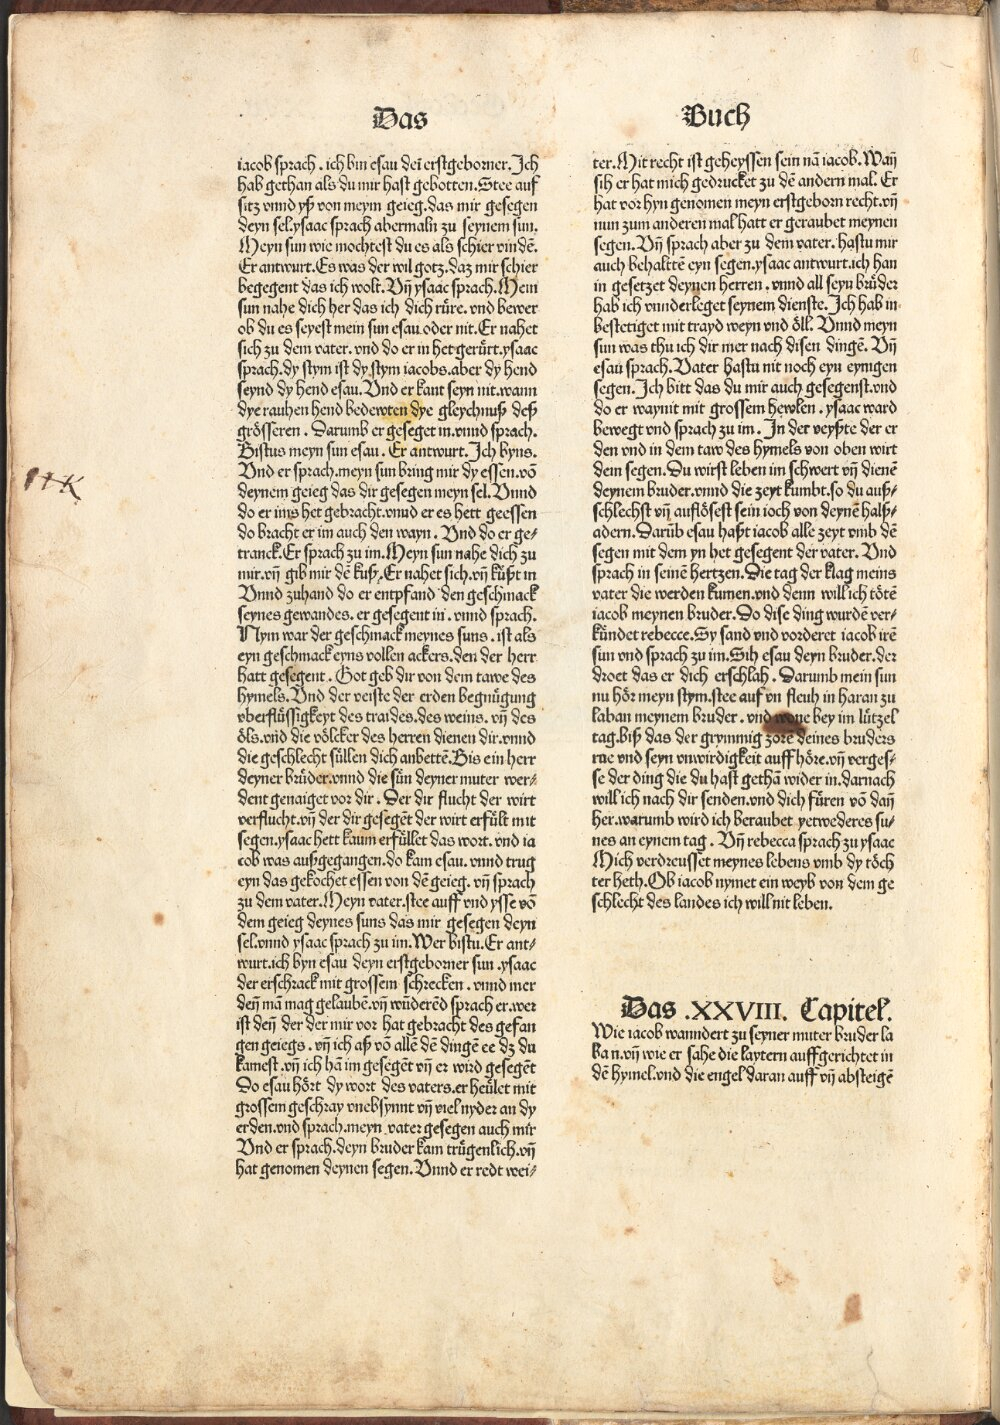 Das Buch
iacob sprach . ich bin esau dei erstgeborner. Ich
hab gethan als du mir hast gebotten. Stee auf
sitz vnnd yß von meym geieg. das mir gesegen
deyn sel. ysaac sprach abermaln zu seynem sun.
Meyn sun wie mochtest du es als schier vindē.
Er antwurt. Es was der wil gotz. daz mir schier
begegent das ich wolt. Vn̄ ysaac sprach. Mein
sun nahe dich her das ich dich rüre. vnd bewer
ob du es seyest mein sun esau. oder nit. Er nahet
sich zu dem vater. vnd do er in het gerürt. ysaac
sprach. dy stym ist dy stym iacobs. aber dy hend
seynd dy hend esau. Vnd er kant seyn nit. wann
dye rauhen hend bedewten dye gleychnuß deß
grösseren . Darumb er geseget in. vnnd sprach.
Bistus meyn sun esau . Er antwurt. Ich byns.
Vnd er sprach. meyn sun bring mir dy essen. vō
deynem geieg das dir gesegen meyn sel. Vnnd
do er ims het gebracht. vnnd er es hett geessen
do bracht er im auch den wayn . Vnd do er ge⸗
tranck. Er sprach zu im. Meyn sun nahe dich zu
mir. vn̄ gib mir dē kuß. Er nahet sich. vn̄ küßt in
Vnnd zuhand do er entpfand den geschmack
seynes gewandes. er gesegent in . vnnd sprach.
Nym war der geschmack meynes suns . ist als
eyn geschmack eyns vollen ackers. den der herr
hatt gesegent . Got geb dir von dem tawe des
hymels. Vnd der veiste der erden begnügung
vberflüssigkeyt des traides. des weins. vn̄ des
öls. vnd die völcker des herren dienen dir. vnnd
die geschlecht süllen dich anbettē. Bis ein herr
deyner brüder. vnnd die sün deyner muter wer⸗
dent genaiget vor dir . Der dir flucht der wirt
verflucht. vn̄ der dir gesegēt der wirt erfült mit
segen. ysaac hett kaum erfüllet das wort. vnd ia
cob was außgegangen. do kam esau. vnnd trug
eyn das gekochet essen von dē geieg. vn̄ sprach
zu dem vater. Meyn vater. stee auff vnd ysse vō
dem geieg deynes suns das mir gesegen deyn
sel. vnnd ysaac sprach zu im. Wer bistu. Er ant⸗
wurt. ich byn esau deyn erstgeborner sun . ysaac
der erschrack mit grossem schrecken . vnnd mer
den̄ man mag gelaubē. vn̄ wūderēd sprach er. wer
ist den̄ der der mir vor hat gebracht des gefan
gen geiegs . vn̄ ich aß vō allē dē dingē ee dz du
kamest . vn̄ ich hā im gesegēt vn̄ er wird gesegēt
Do esau hört dy wort des vaters. er heület mit
grossem geschray vnebsynnt vn̄ viel nyder an dy
erden. vnd sprach. meyn vater gesegen auch mir
Vnd er sprach. deyn bruder kam trügenlich. vn̄
hat genomen deynen segen. Vnnd er redt wei⸗
ter. Mit recht ist geheyssen sein nā iacob. Wan̄
sih er hat mich gedrucket zu dē andern mal. Er
hat vor hyn genomen meyn erstgeborn recht. vn̄
nun zum anderen mal hatt er geraubet meynen
segen. Vn̄ sprach aber zu dem vater. hastu mir
auch behaltē eyn segen. ysaac antwurt. ich han
in gesetzet deynen herren . vnnd all seyn brüder
hab ich vnnderleget seynem dienste. Ich hab in
bestetiget mit trayd weyn vnd öll. Vnnd meyn
sun was thu ich dir mer nach disen dingē. Vn̄
esau sprach. Vater hastu nit noch eyn eynigen
segen. Ich bitt das du mir auch gesegenst. vnd
do er waynit mit grossem hewlen . ysaac ward
bewegt vnd sprach zu im . In der veyßte der er
den vnd in dem taw des hymels von oben wirt
dein segen. Du wirst leben im schwert vn̄ dienē
deynem bruder. vnnd die zeyt kumbt. so du auß⸗
schlechst vn̄ auflösest sein ioch von deynē halß⸗
adern. Darūb esau haßt iacob alle zeyt vmb dē
segen mit dem yn het gesegent der vater. Vnd
sprach in seinē hertzen. Die tag der klag meins
vater die werden kumen. vnd denn will ich tötē
iacob meynen bruder. Do dise ding wurdē ver⸗
kündet rebecce. Sy sand vnd vorderet iacob irē
sun vnd sprach zu im. Sih esau deyn bruder. der
droet das er dich erschlah . Darumb mein sun
nu hör meyn stym. stee auf vn fleuh in haran zu
laban meynem bruder . vnd wone bey im lützel
tag. biß das der grymmig zorē deines bruders
rue vnd seyn vnwirdigkeit auff höre. vn̄ verges⸗
se der ding die du hast gethā wider in. darnach
will ich nach dir senden. vnd dich füren vō dan̄
her. warumb wird ich beraubet yetwederes su⸗
nes an eynem tag . Vn̄ rebecca sprach zu ysaac
Mich verdreusset meynes lebens vmb dy töch
ter heth. Ob iacob nymet ein weyb von dem ge
schlecht des landes ich will nit leben.
Das .XXVIII. Capitel.
Wie iacob wanndert zu seyner muter bruder la
ban. vn̄ wie er sahe die laytern auffgerichtet in
dē hymel. vnd die engel daran auff vn̄ absteigē